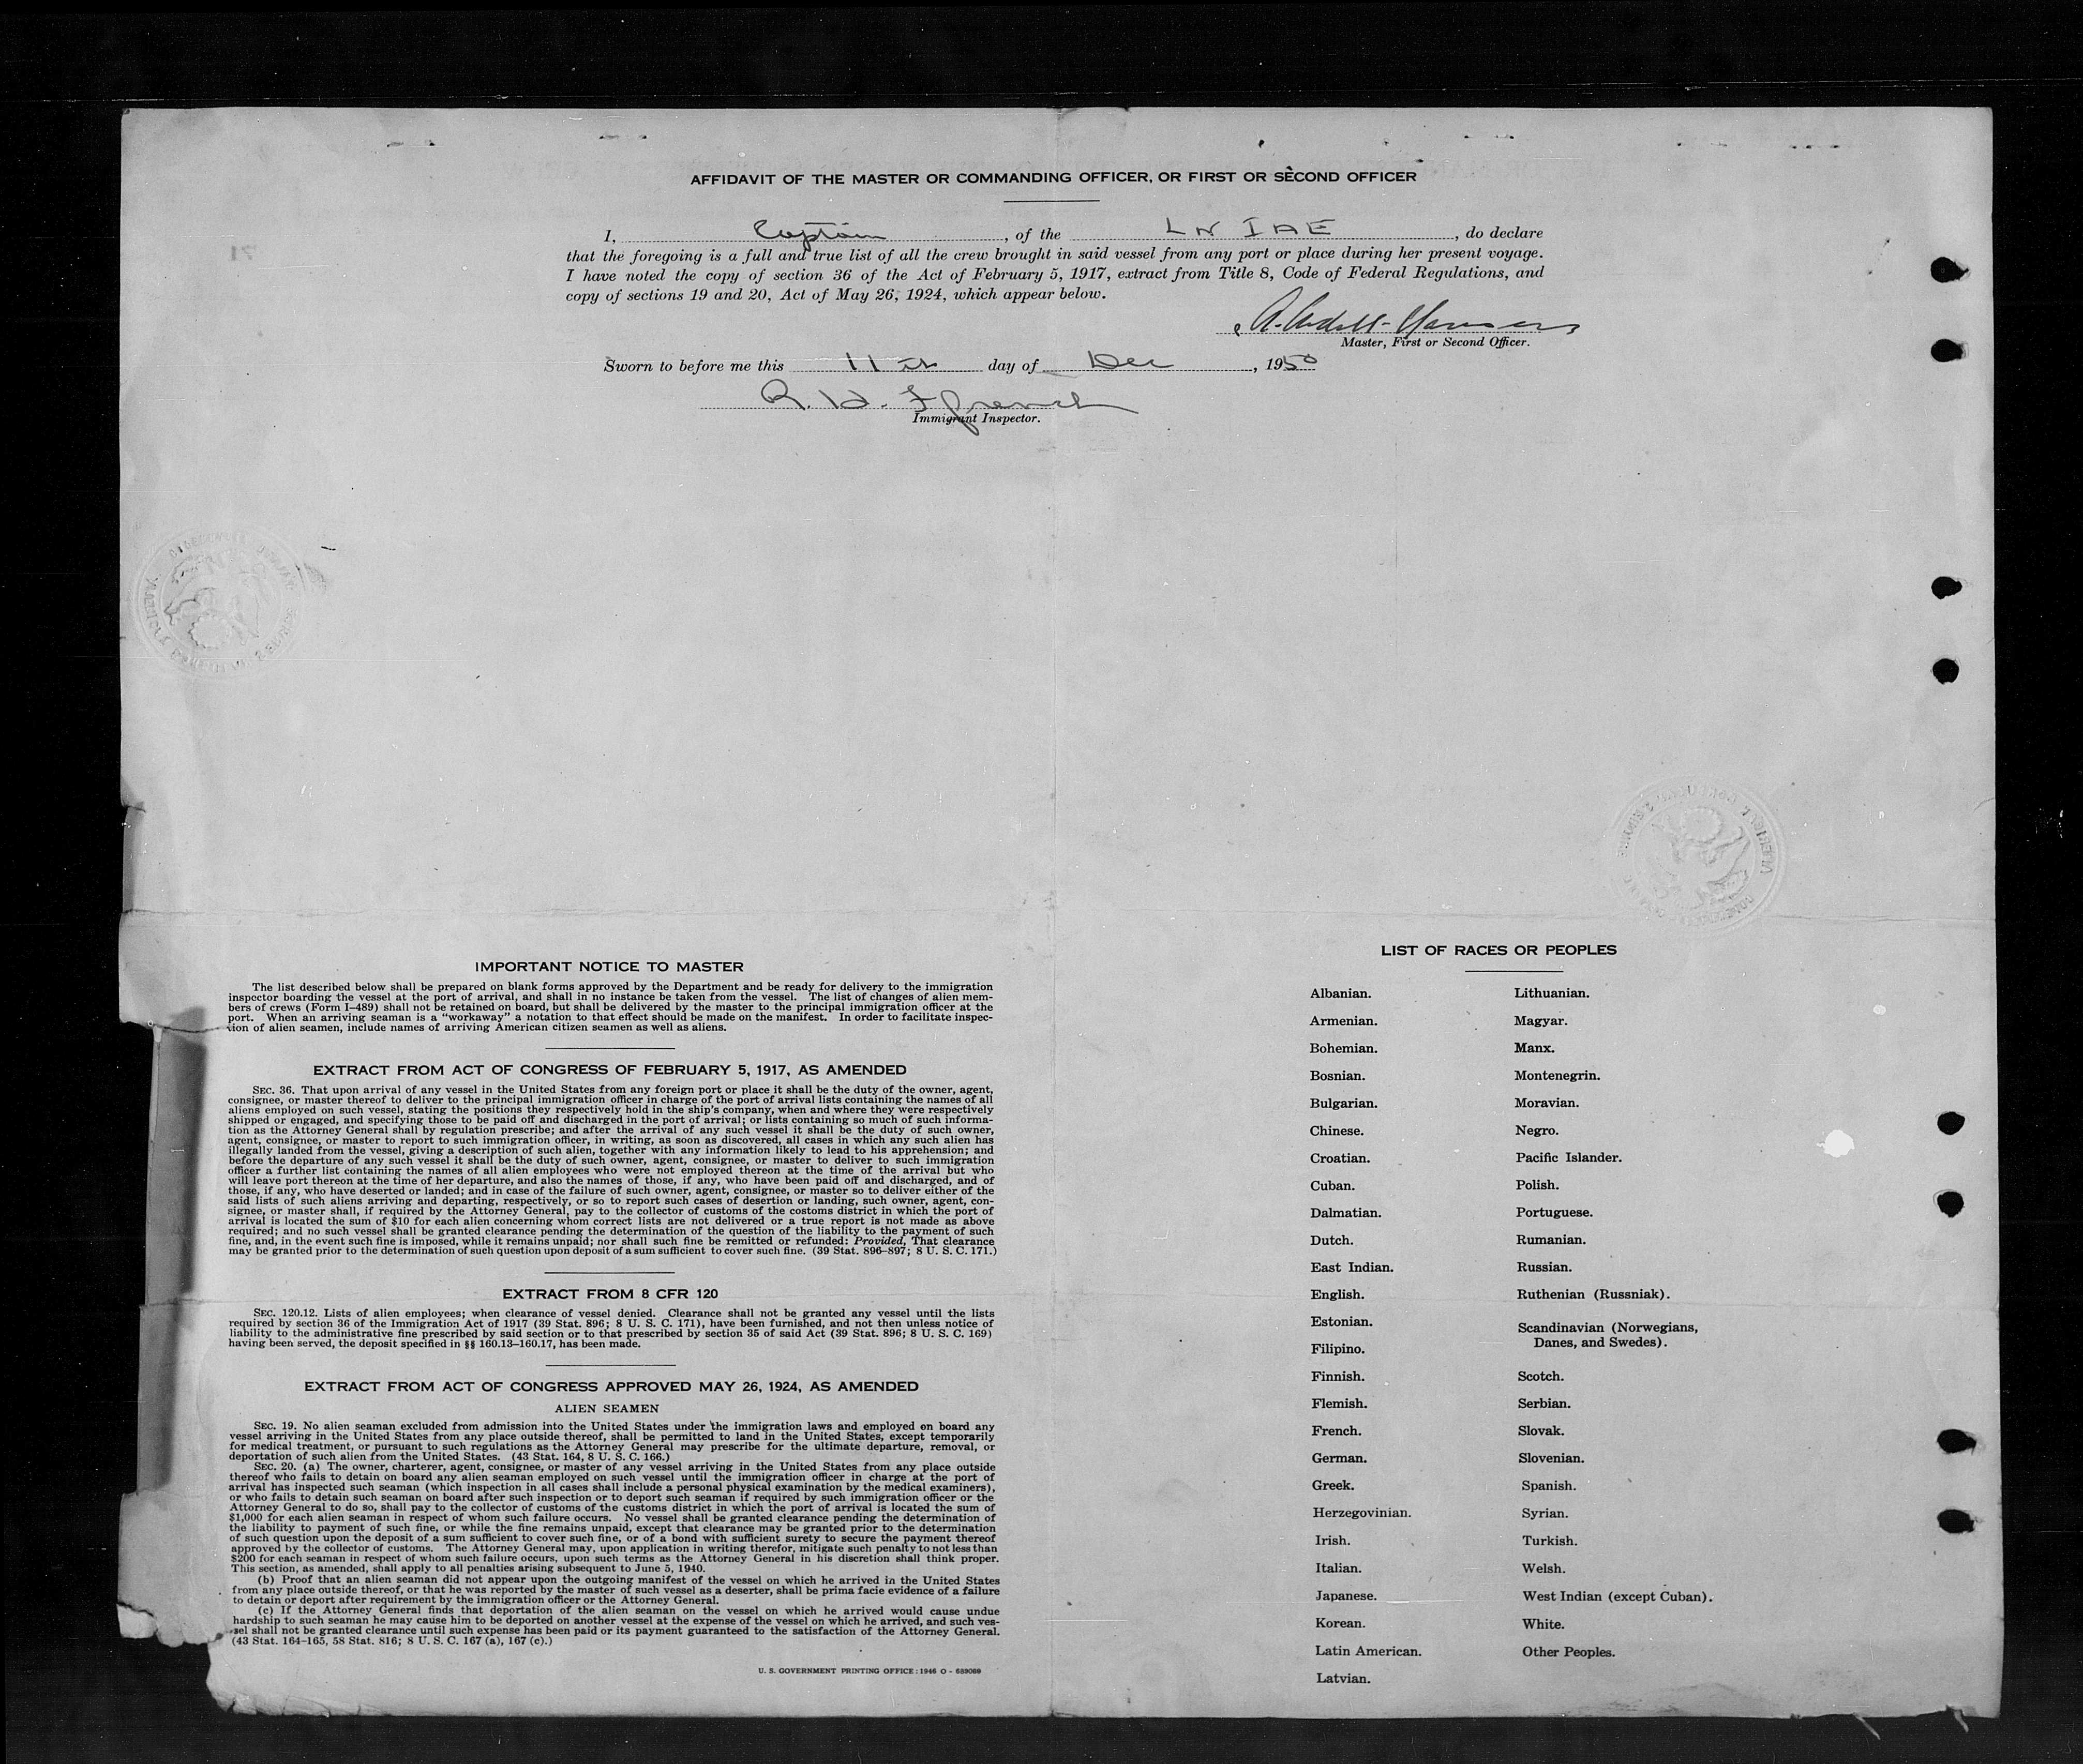 AFFIDAVIT OF THE MASTER OR COMMANDING OFFICER, OR FIRST OR SECOND OFFICER
I, Captain, of the LN IAE, do declare
that the foregoing is a full and true list of all the crew brought in said vessel from any port or place during her present voyage.
I have noted the copy of section 36 of the Act of February 5, 1917, extract from Title 8, Code of Federal Regulations, and
copy of sections 19 and 20, Act of May 26, 1924, which appear below.
Master, First or Second Officer.
Sworn to before me this 11th day of Dec, 1950
R. W. Ffrench
Immigrant Inspector.
71
IMPORTANT NOTICE TO MASTER
The list described below shall be prepared on blank forms approved by the Department and be ready for delivery to the immigration
inspector boarding the vessel at the port of arrival, and shall in no instance be taken from the vessel. The list of changes of alien mem-
bers of crews (Form I-489) shall not be retained on board, but shall be delivered by the master to the principal immigration officer at the
port. When an arriving seaman is a "workaway" a notation to that effect should be made on the manifest. In order to facilitate inspec-
tion of alien seamen, include names of arriving American citizen seamen as well as aliens.
EXTRACT FROM ACT OF CONGRESS OF FEBRUARY 5, 1917, AS AMENDED
SEC. 36. That upon arrival of any vessel in the United States from any foreign port or place it shall be the duty of the owner, agent,
consignee, or master thereof to deliver to the principal immigration officer in charge of the port of arrival lists containing the names of all
aliens employed on such vessel, stating the positions they respectively hold in the ship's company, when and where they were respectively
shipped or engaged, and specifying those to be paid off and discharged in the port of arrival; or lists containing so much of such informa-
tion as the Attorney General shall by regulation prescribe; and after the arrival of any such vessel it shall be the duty of such owner,
agent, consignee, or master to report to such immigration officer, in writing, as soon as discovered, all cases in which any such alien has
illegally landed from the vessel, giving a description of such alien, together with any information likely to lead to his apprehension; and
before the departure of any such vessel it shall be the duty of such owner, agent, consignee, or master to deliver to such immigration
officer a further list containing the names of all alien employees who were not employed thereon at the time of the arrival but who
will leave port thereon at the time of her departure, and also the names of those, if any, who have been paid off and discharged, and of
those, if any, who have deserted or landed; and in case of the failure of such owner, agent, consignee, or master so to deliver either of the
said lists of such aliens arriving and departing, respectively, or so to report such cases of desertion or landing, such owner, agent, con-
signee, or master shall, if required by the Attorney General, pay to the collector of customs of the costoms district in which the port of
arrival is located the sum of $10 for each alien concerning whom correct lists are not delivered or a true report is not made as above
required; and no such vessel shall be granted clearance pending the determination of the question of the liability to the payment of such
fine, and, in the event such fine is imposed, while it remains unpaid; nor shall such fine be remitted or refunded: Provided, That clearance
may be granted prior to the determination of such question upon deposit of a sum sufficient to cover such fine. (39 Stat. 896-897; 8 U. S. C. 171.)
EXTRACT FROM 8 CFR 120
SEC. 120.12. Lists of alien employees; when clearance of vessel denied. Clearance shall not be granted any vessel until the lists
required by section 36 of the Immigration Act of 1917 (39 Stat. 896; 8 U. S. C. 171), have been furnished, and not then unless notice of
liability to the administrative fine prescribed by said section or to that prescribed by section 35 of said Act (39 Stat. 896; 8 U. S. C. 169)
having been served, the deposit specified in §§ 160.13-160.17, has been made.
EXTRACT FROM ACT OF CONGRESS APPROVED MAY 26, 1924, AS AMENDED
ALIEN SEAMEN
SEC. 19. No alien seaman excluded from admission into the United States under the immigration laws and employed on board any
vessel arriving in the United States from any place outside thereof, shall be permitted to land in the United States, except temporarily
for medical treatment, or pursuant to such regulations as the Attorney General may prescribe for the ultimate departure, removal, or
deportation of such alien from the United States. (43 Stat. 164, 8 U. S. C. 166.)
SEC. 20. (a) The owner, charterer, agent, consignee, or master of any vessel arriving in the United States from any place outside
thereof who fails to detain on board any alien seaman employed on such vessel until the immigration officer in charge at the port of
arrival has inspected such seaman (which inspection in all cases shall include a personal physical examination by the medical examiners),
or who fails to detain such seaman on board after such inspection or to deport such seaman if required by such immigration officer or the
Attorney General to do so, shall pay to the collector of customs of the customs district in which the port of arrival is located the sum of
$1,000 for each alien seaman in respect of whom such failure occurs. No vessel shall be granted clearance pending the determination of
the liability to payment of such fine, or while the fine remains unpaid, except that clearance may be granted prior to the determination
of such question upon the deposit of a sum sufficient to cover such fine, or of a bond with sufficient surety to secure the payment thereof
approved by the collector of customs. The Attorney General may, upon application in writing therefor, mitigate such penalty to not less than
$200 for each seaman in respect of whom such failure occurs, upon such terms as the Attorney General in his discretion shall think proper.
This section, as amended, shall apply to all penalties arising subsequent to June 5, 1940.
(b) Proof that an alien seaman did not appear upon the outgoing manifest of the vessel on which he arrived in the United States
from any place outside thereof, or that he was reported by the master of such vessel as a deserter, shall be prima facie evidence of a failure
to detain or deport after requirement by the immigration officer or the Attorney General.
(c) If the Attorney General finds that deportation of the alien seaman on the vessel on which he arrived would cause undue
hardship to such seaman he may cause him to be deported on another vessel at the expense of the vessel on which he arrived, and such ves-
sel shall not be granted clearance until such expense has been paid or its payment guaranteed to the satisfaction of the Attorney General.
(43 Stat. 164-165, 58 Stat. 816; 8 U. S. C. 167 (a), 167 (c).)
U. S. GOVERNMENT PRINTING OFFICE : 1946 O - 683069
LIST OF RACES OR PEOPLES
Albanian.
Armenian.
Bohemian.
Bosnian.
Bulgarian.
Chinese.
Croatian.
Cuban.
Dalmatian.
Dutch.
East Indian.
English.
Estonian.
Filipino.
Finnish.
Flemish.
French.
German.
Greek.
Herzegovinian.
Irish.
Italian.
Japanese.
Korean.
Latin American.
Latvian.
Lithuanian.
Magyar.
Manx.
Montenegrin.
Moravian.
Negro.
Pacific Islander.
Polish.
Portuguese.
Rumanian.
Russian.
Ruthenian (Russniak).
Scandinavian (Norwegians,
Danes, and Swedes).
Scotch.
Serbian.
Slovak.
Slovenian.
Spanish.
Syrian.
Turkish.
Welsh.
West Indian (except Cuban).
White.
Other Peoples.